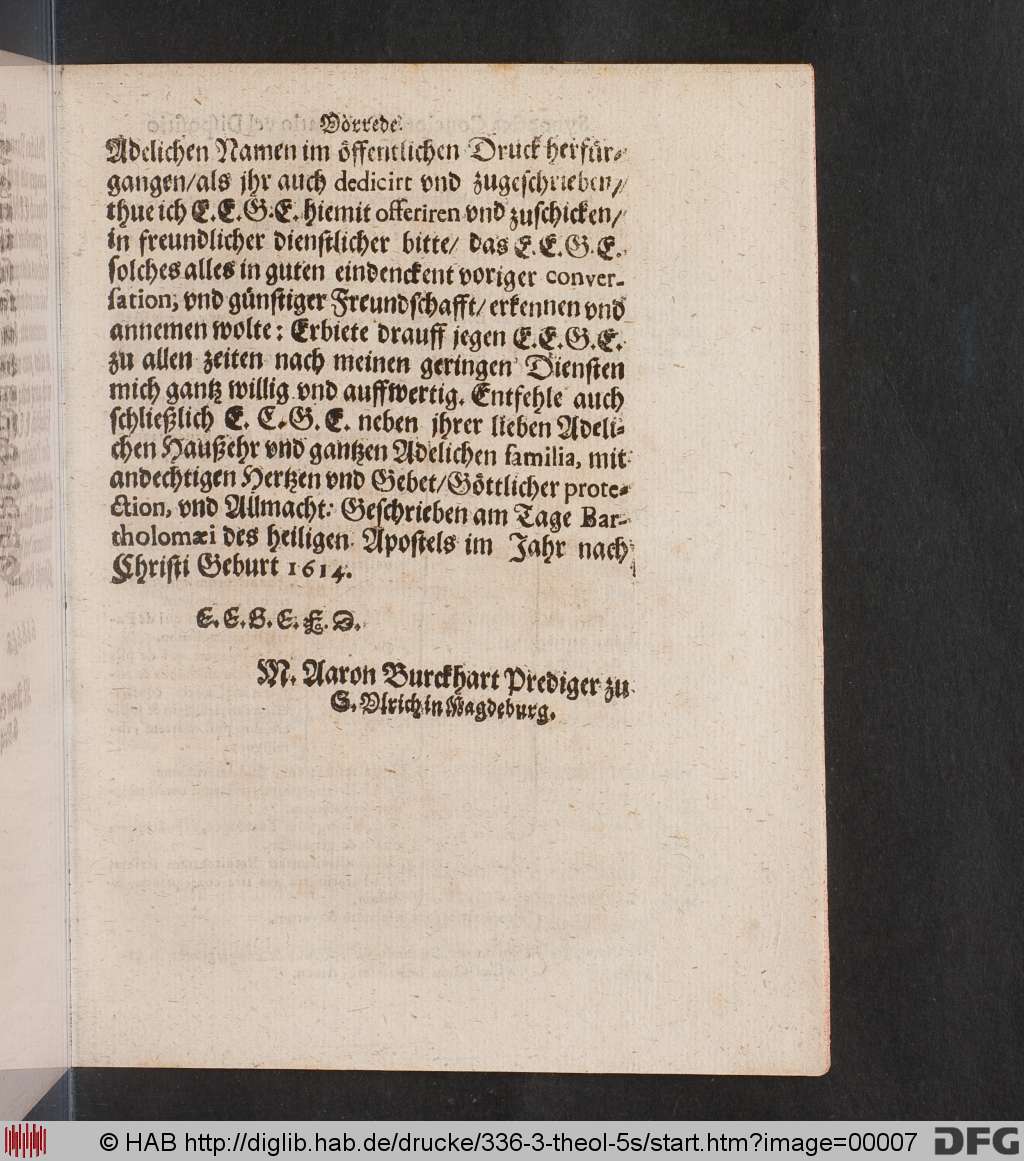 Vorrede.
Adelichen Namen im öffentlichen Druck herfür-
gangen/als jhr auch dedicirt vnd zugeschrieben/
thue ich E.E.G.E. hiemit offeriren vnd zuschicken/
in freundlicher dienstlicher bitte/ das E.E.G.E.
solches alles in guten eindenckent voriger conver-
sation, vnd günstiger Freundschafft/ erkennen vnd
annemen wolte: Erbiete drauff jegen E.E.G.E.
zu allen zeiten nach meinen geringen Diensten
mich gantz willig vnd auffwertig. Entfehle auch
schließlich E. E.G. E. neben jhrer lieben Adeli-
chen Haußehr vnd gantzen Adelichen familia, mit
andechtigen Hertzen vnd Gebet/Göttlicher prote-
ction, vnd Allmacht. Geschrieben am Tage Bar-
tholomæi des heiligen Apostels im Jahr nach
Christi Geburt 1614.
E. E. G. E. F. D.
M. Aaron Burckhart Prediger zu
S. Vlrich in Magdeburg.
© HAB http://diglib.hab.de/drucke/336-3-theol-5s/start.htm?image=00007
DFG